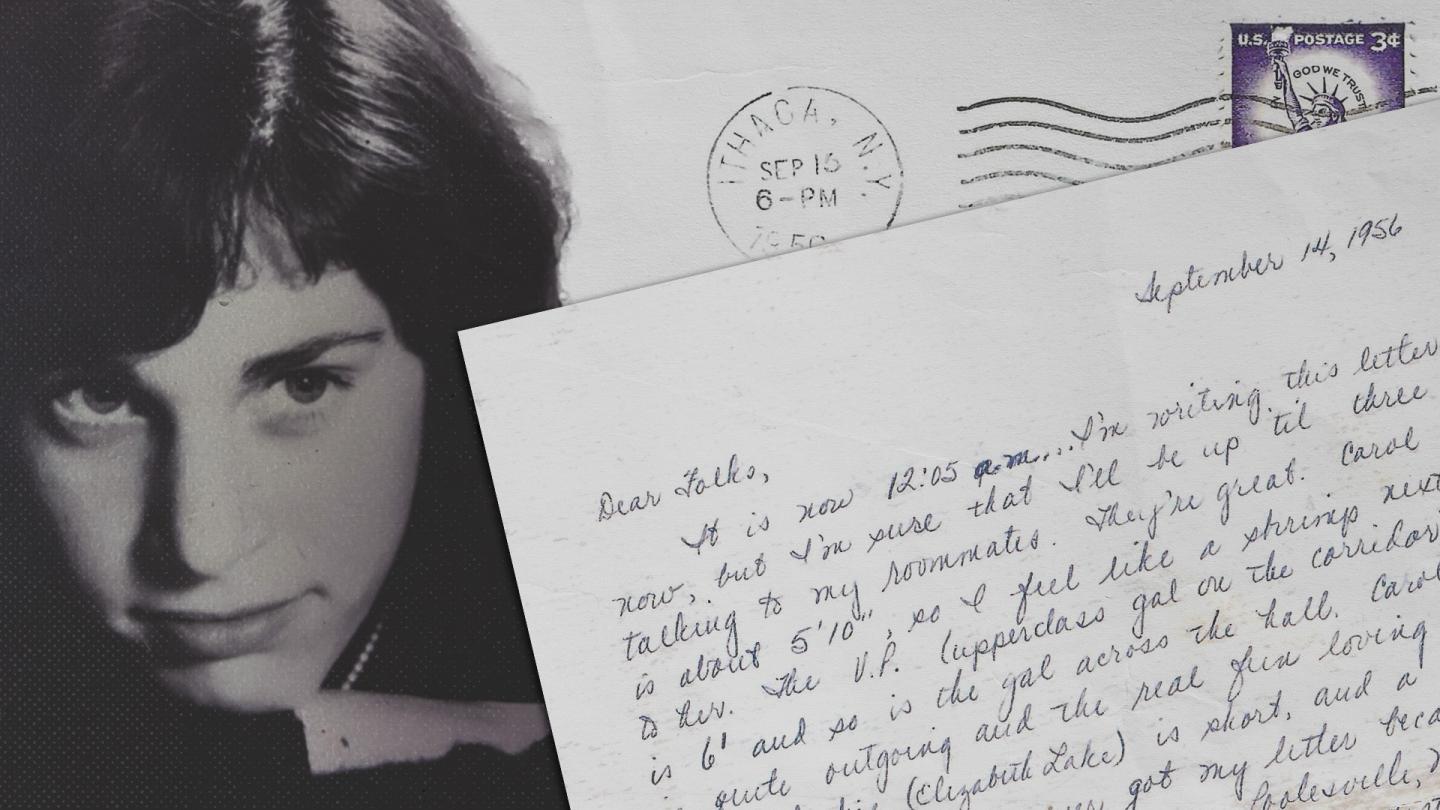 U.S. POSTAGE 3¢
GOD WE TRUST
ITHACA, N.Y.
SEP 15
6-PM
September 14, 1956
Dear Folks,
It is now 12:05 a.m... I'm writing this letter
now, but I'm sure that I'll be up til three
talking to my roommates. They're great. Carol
is about 5'10", so I feel like a shrimp next
to her. The V.P. (upperclass gal on the corridor)
is 6' and so is the gal across the hall. Carol
is quite outgoing and the real fun loving
(Elizabeth Lake) is short, and a
got my letter beca
Poolesville,